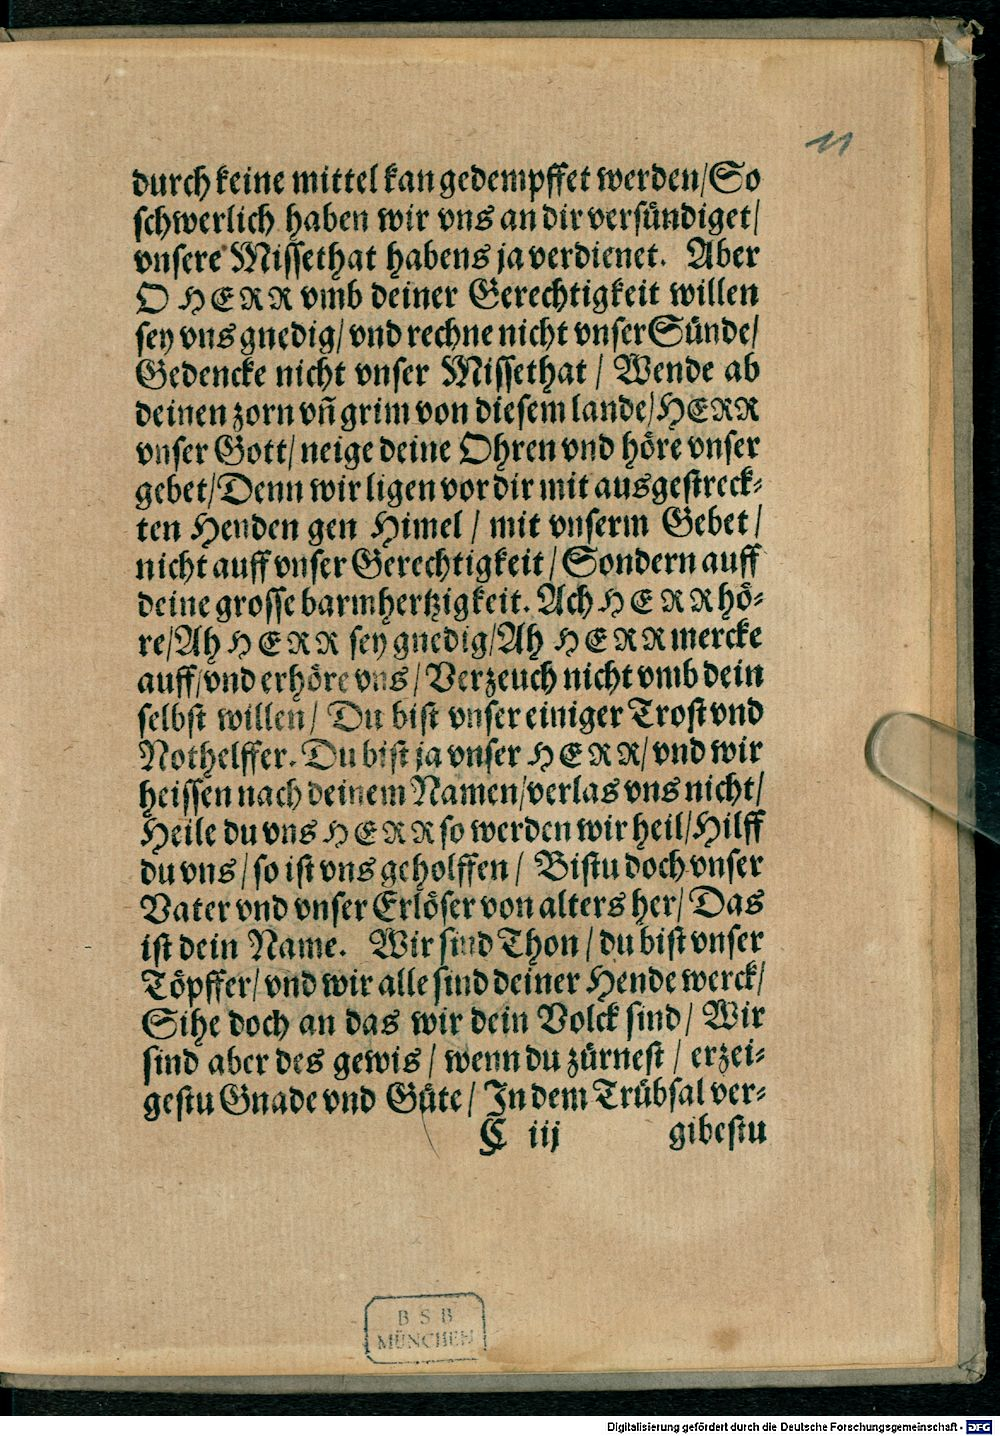 11
durch keine mittel kan gedempffet werden/So
schwerlich haben wir vns an dir versündiget/
vnsere Missethat habens ja verdienet. Aber
O HERR vmb deiner Gerechtigkeit willen
sey vns gnedig/ vnd rechne nicht vnser Sünde/
Gedencke nicht vnser Missethat / Wende ab
deinen zorn vñ grim von diesem lande/HERR
vnser Gott/ neige deine Ohren vnd höre vnser
gebet/Denn wir ligen vor dir mit ausgestreck⸗
ten Henden gen Himel / mit vnserm Gebet/
nicht auff vnser Gerechtigkeit/ Sondern auff
deine grosse barmhertzigkeit. Ach HERR hö⸗
re/Ah HERR sey gnedig/Ah HERR mercke
auff/vnd erhöre vns/ Verzeuch nicht vmb dein
selbst willen/ Du bist vnser einiger Trost vnd
Nothelffer. Du bist ja vnser HERR/ vnd wir
heissen nach deinem Namen/verlas vns nicht/
Heile du vns HERR so werden wir heil/Hilff
du vns/ so ist vns geholffen/ Bistu doch vnser
Vater vnd vnser Erlöser von alters her/ Das
ist dein Name. Wir sind Thon/ du bist vnser
Töpffer/ vnd wir alle sind deiner Hende werck/
Sihe doch an das wir dein Volck sind/ Wir
sind aber des gewis/ wenn du zürnest/ erzei⸗
gestu Gnade vnd Güte/ In dem Trübsal ver⸗
C iij gibestu
BSB
MÜNCHEN
Digitalisierung gefördert durch die Deutsche Forschungsgemeinschaft - DFG